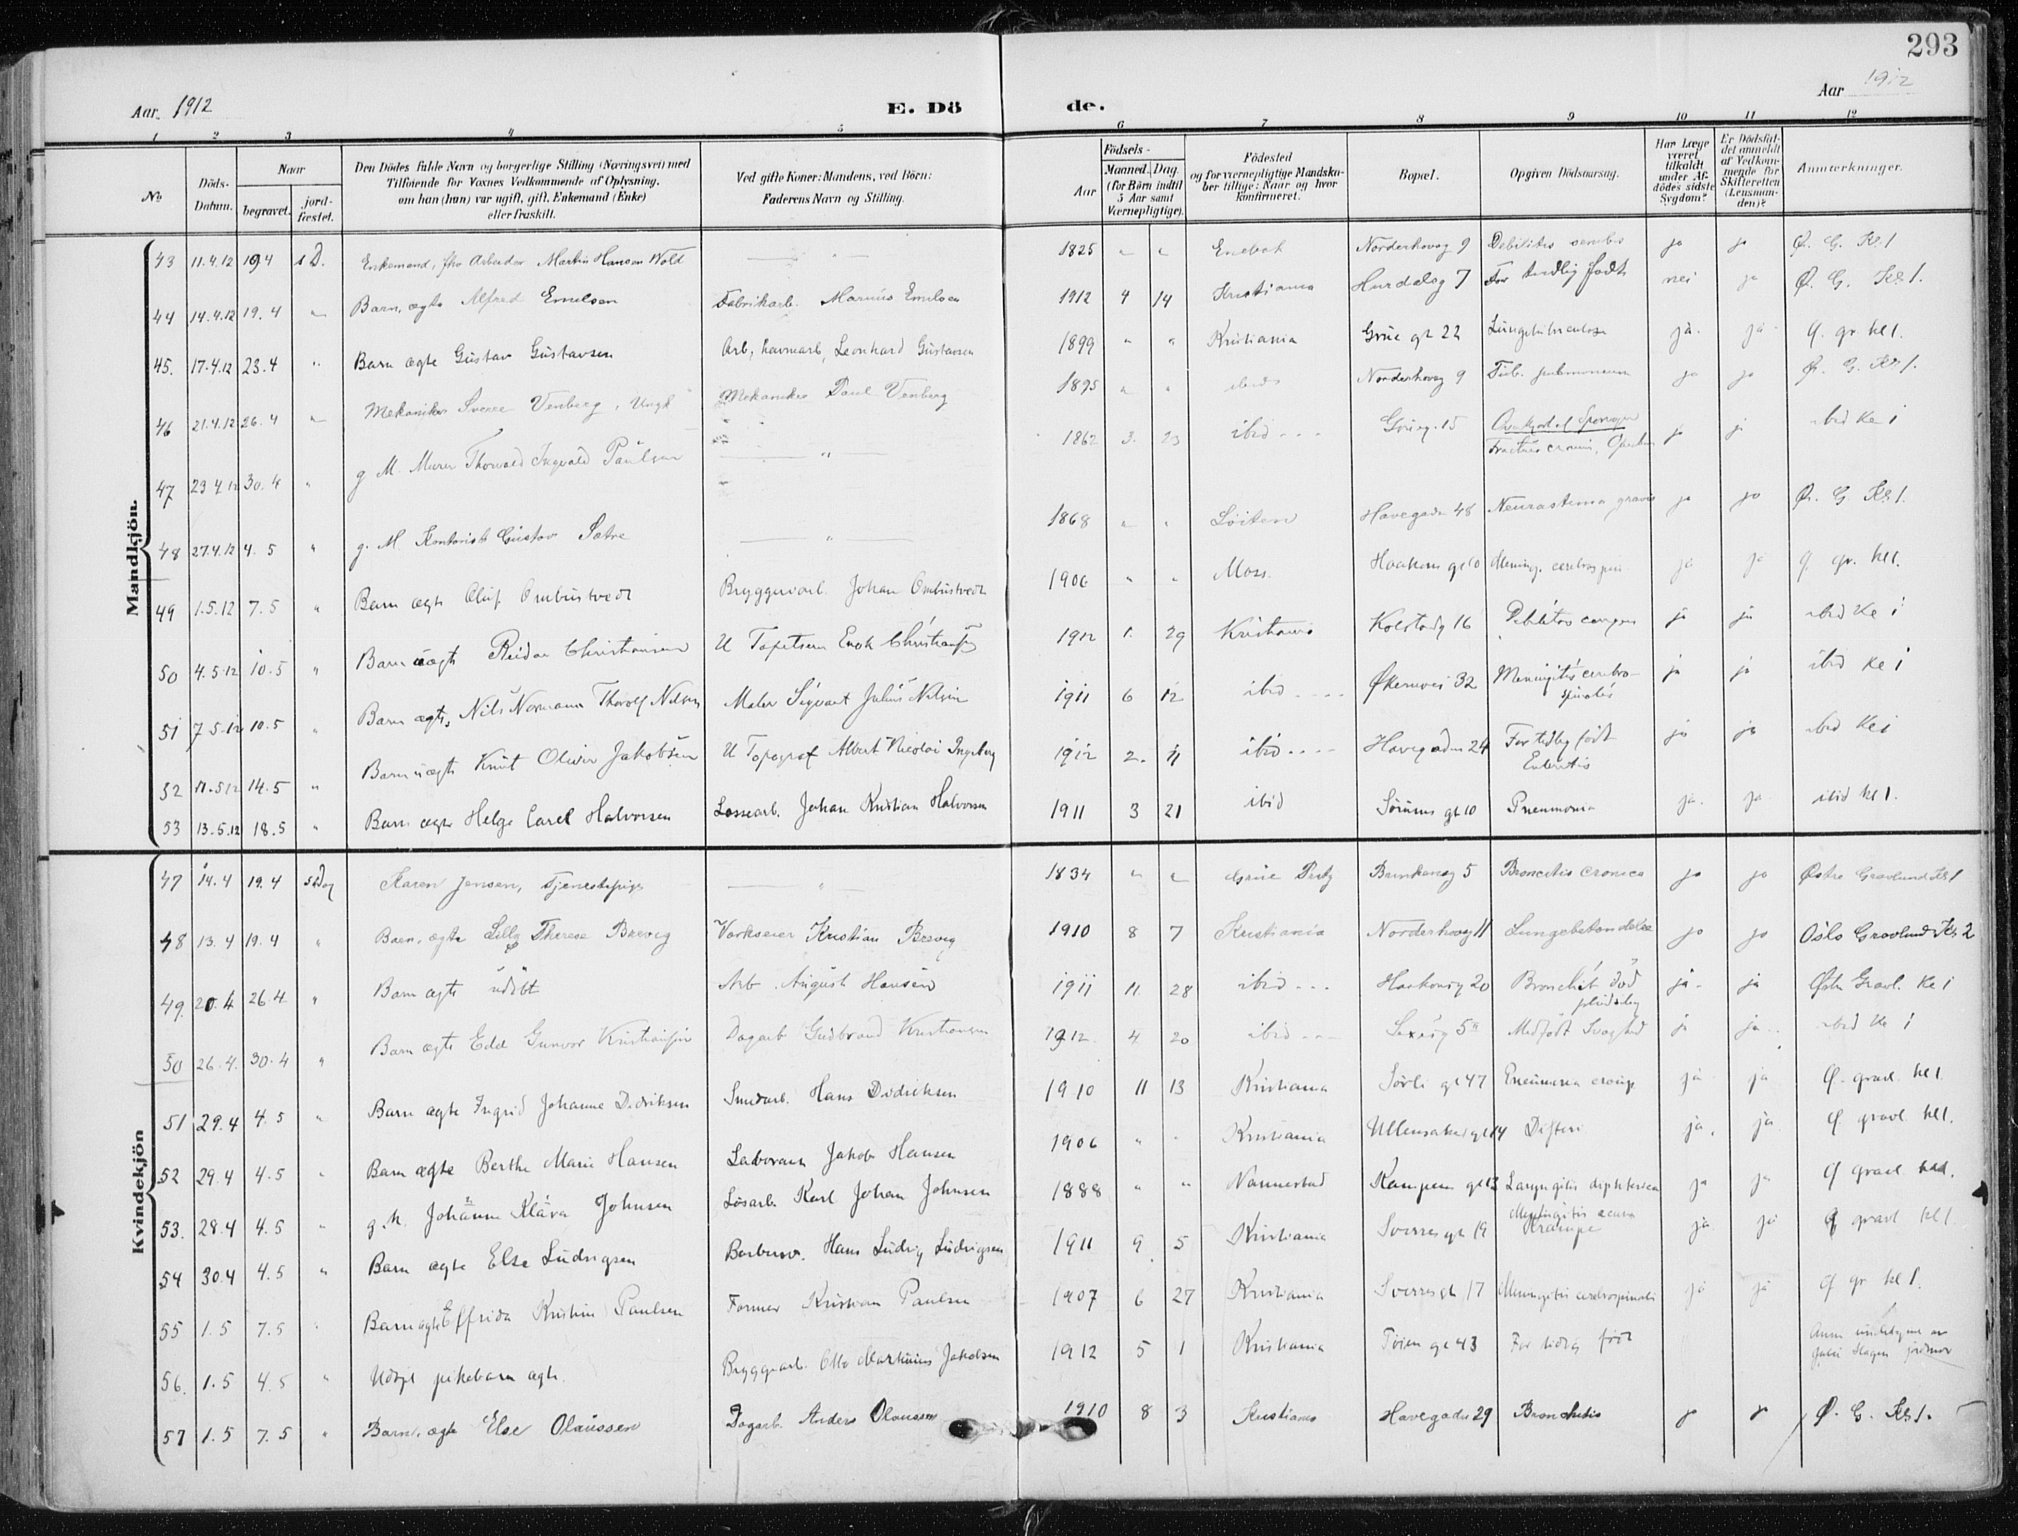 293
Aar 1912
E. Dö
de.
Aar 1912
1 2 3 4 5 6 7 8 9 10 11 12
No
Döds-Datum.
Naar
begravet.
jord-fæstet.
Den Dödes fulde Navn og borgerlige Stilling (Næringsvei) med Tilföiende for Voxnes Vedkommende af Oplysning, om han (hun) var ugift, gift, Enkemand (Enke) eller fraskilt.
Ved gifte Koner: Mandens, ved Börn: Faderens Navn og Stilling.
Födsels-
Aar
Maaned. Dag.
(for Börn indtil 5 Aar samt Værnepligtige).
Födested og for værnepligtige Mandskaber tillige: Naar og hvor konfirmeret.
Bopæl.
Opgiven Dödsaarsag.
Har Læge været tilkaldt under Afdödes sidste Sygdom?
Er Dödsfaldet anmeldt af Vedkommende for Skifteretten (Lensmanden)?
Anmærkninger.
Mandkjön.
43 11.4.12 19 4 s D. Enkemand, fhv Arbeider Martin Hansen Wold — " — 1825 " " Enebak Norderhovsg 9 Debilitas senilis ja ja Ø. G. Kl 1
44 14.4.12 19.4 " Barn, ægte Alfred Emilsen Fabrikarb. Marius Emilsen 1912 4 14 Kristiania Hurdalsg 7 For tidlig født nei ja Ø. G. Kl 1.
45. 17.4.12 23.4 " Barn ægte Gustav Gustavsen Arb, havnearb, Leonhard Gustavsen 1899 " " Kristiania Grüe gt 22 Lungetuberculose ja. ja. Ø. gr. kl 1.
46 21.4.12 26.4 " Mekaniker Sverre Venberg, Ungk Mekaniker Paul Venberg 1895 " " ibid Norderhovsg 9 Tub. pulmonum ja ja Ø. G. Kl 1.
47 23 4 12 30.4 " g M. Murer Thorvald Ingvald Paulsen — " — 1862 3. 23 ibid Grüeg. 15 Overkjørt af Sporvogn Fractura cranii, ja ja ibid Kl 1
48 27.4.12 4. 5 " g. M Kontorist Gustav Sætre — " — 1868 " " Löiten Havegaden 48 Neurastenia gravis ja ja Ø. G. Kl 1.
49 1.5.12 7.5 " Barn ægte Oluf Ombustvedt Bryggeriarb Johan Ombustvedt 1906 " " Moss. Haakons gt 10 Mening. cerebrospin ja ja Ø gr. kl 1.
50 4.5.12 10.5 " Barn uægte Reidar Christiansen U Tapetserer Enok Christiansen 1912 1. 29 Kristiania Kolstadg 16 Debilitas congen ja ja ibid Kl 1
51 7 5.12 10.5 " Barn ægte, Nils Normann Thorolf Nilsen Maler Sigvart Julius Nilsen 1911 6 12 ibid Økernvei 32 Meningitis cerebro-spinalis ja ja ibid Kl 1
52 11.5 12 14.5 " Barn uægte Knut Oliver Jakobsen U Typograf Albert Nicolai Ingeberg 1912 2. 11 ibid Havegaden 24 For tidlig født Enteritis ja ja ibid Kl 1
53 13.5.12 18.5 " Barn ægte Helge Carel Halvorsen Lossearb. Johan Kristian Halvorsen 1911 3 21 ibid Sörums gt 10 Pneumonia ja. ja ibid kl 1.
Kvindekjön
47 14.4 19.4 s Dag Karen Jensen, Tjenestepige — " — 1834 " " Grüe Brinkensg 5 Broncitis cronica ja ja Østre Gravlund Kl 1
48 13.4 19.4 " Barn. ægte Lilly Therese Brevig Værkseier Kristian Brevig 1910 8 7 Kristiania Norderhovsg 11 Lungebetændelse ja ja Oslo Gravlund Kl. 2
49 20.4 26.4 " Barn ægte udöbt Arb August Hansen 1911 11. 28 ibid Haakonsg 20 Bronchit død pludselig ja. ja Øst Gravl. Kl 1
50 26.4. 30.4 " Barn ægte Edd Gunvor Kristiansen Dagarb Gudbrand Kristiansen 1912 4 20 ibid 5 Medfødt Svaghed ja ja ibid Kl 1
51 29.4 4.5 " Barn ægte Ingrid Johanne Didriksen Smedarb. Hans Didriksen 1910 11 13 Kristiania Sörli gt 47 Pneumonia croup ja ja Ø. gravl. kl 1
52 29.4 4.5 " Barn ægte Berthe Marie Hansen Jakob Hansen 1906 " " Kristiania Ullensaker gt 14 Difteri ja. ja Ø gravl kl 1.
53. 28.4 4.5 " g. K. Johanne Klara Johnsen Løsarb. Karl Johan Johnsen 1888 " " Nannestad Kampen gt 13 Laryngitis diphtferica ja ja Ø gravl kl 1.
54 30.4 4.5 " Barn ægte Else Ludvigsen Hans Ludvig Ludvigsen 1911 9 5 Kristiania Sverres gt 19 Meningitis acuta Krampe ja ja Ø gravl kl 1.
55 1.5 7.5 " Barn ægte Effrida Kristine Paulsen Former Kristian Paulsen 1907 6 27 Kristiania Sverres gt 17 Meningitis cerebrospinalis ja ja Ø gr kl 1.
56. 1.5 4.5 " Udöpt pikebarn ægte. Bryggearb. Otto Martinius Jakobsen 1912 5 1 Kristiania Töien gt 43 For tidlig född Anm av Hagen jordmor
57 1.5 7.5 " Barn, ægte Else Olaussen Dagarb. Anders Olaussen 1910 8 3 Kristiania Havegaden 29 Bronchitis ja ja Ø. G. Kl 1.